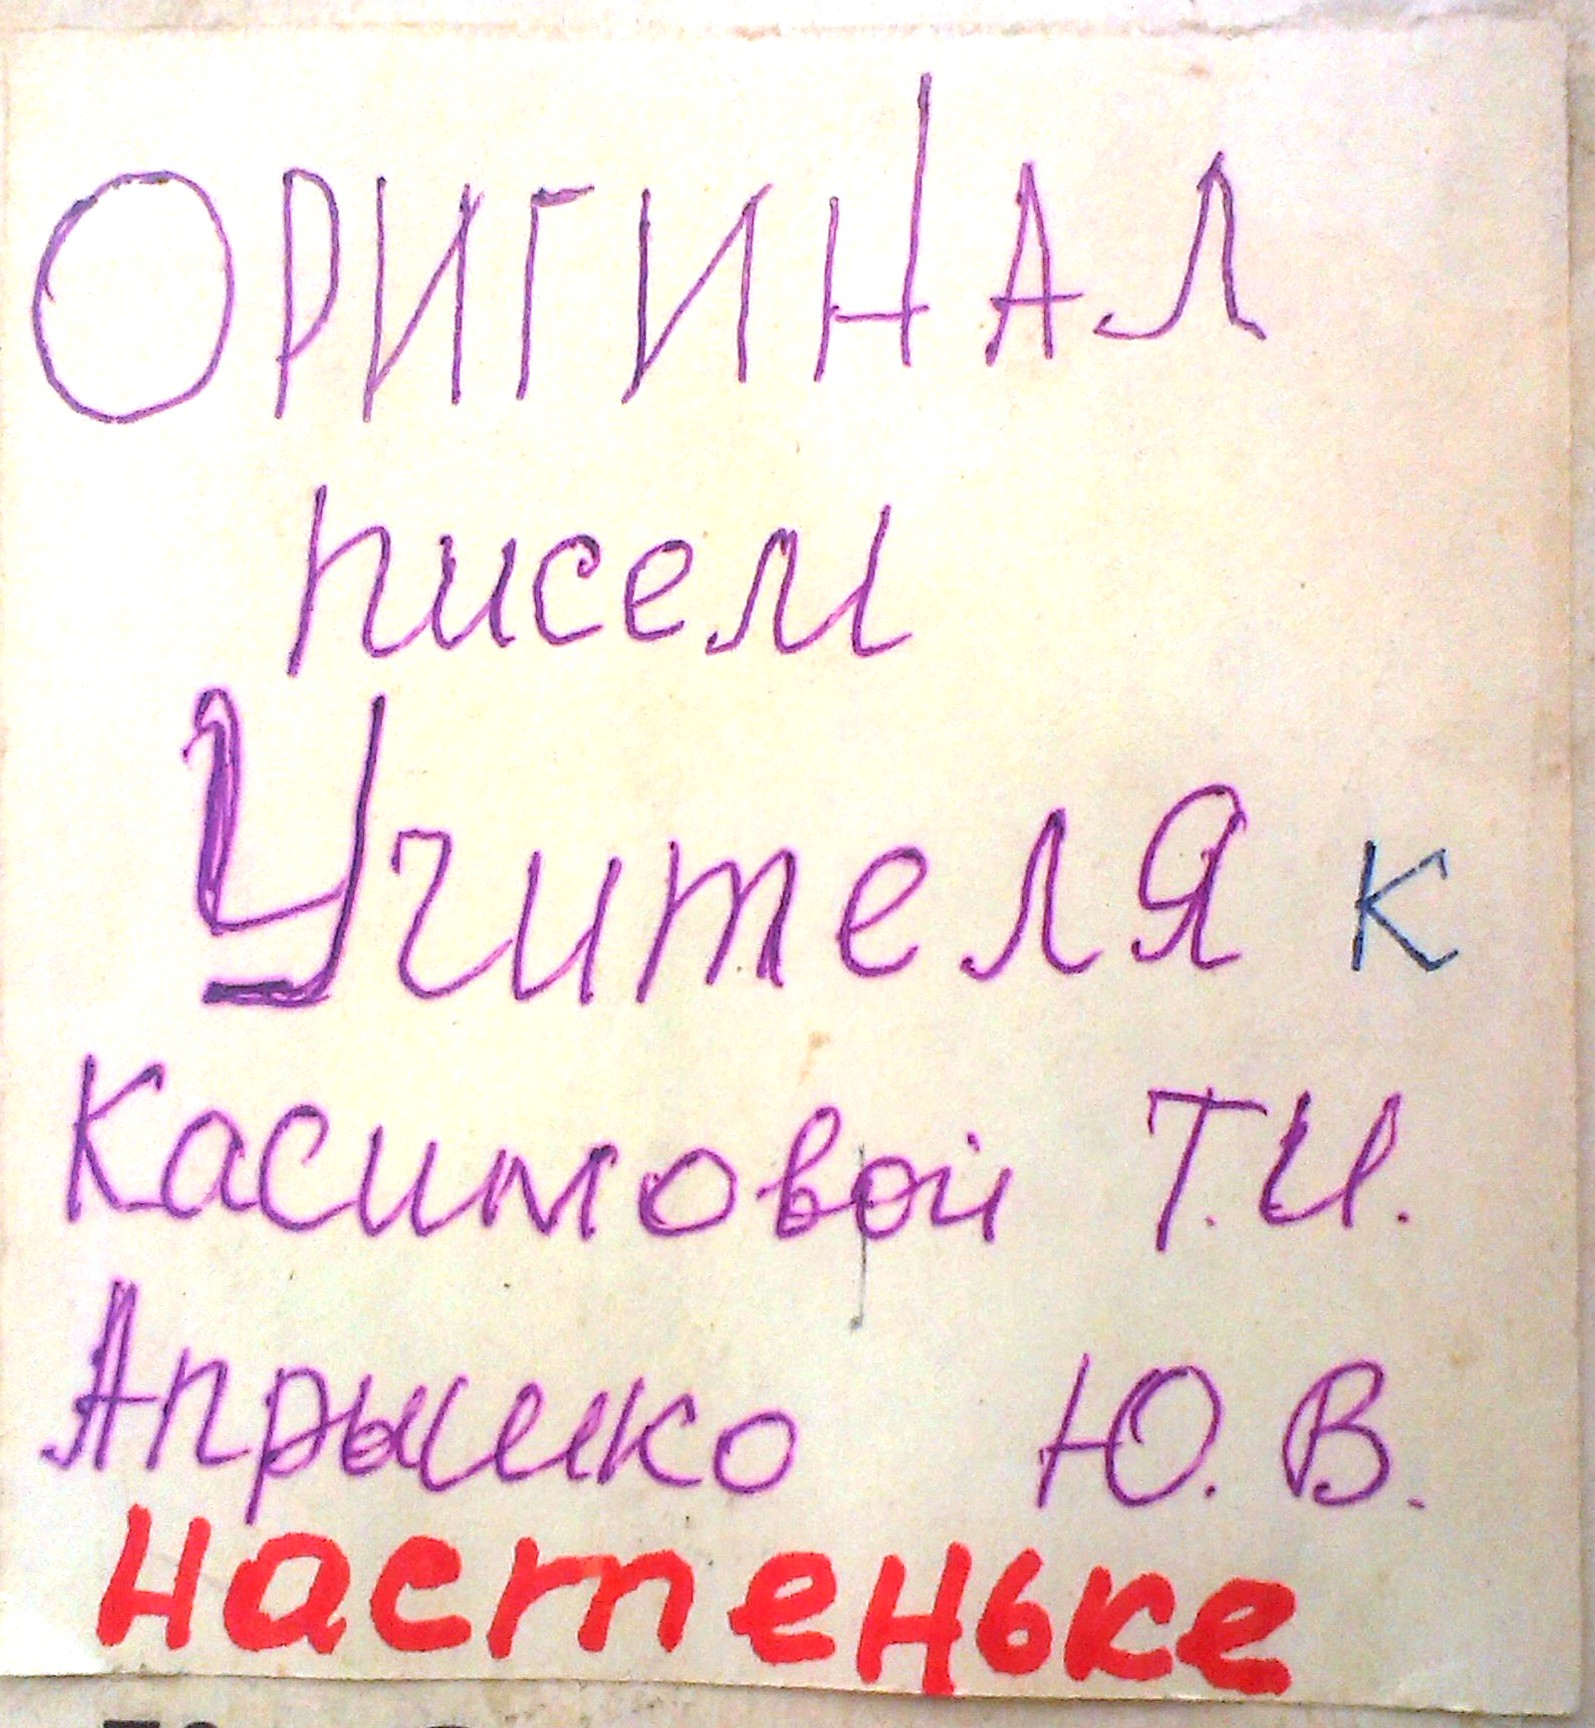 ОРИГИНАЛ
писем
Учителя к
Касимовой Т.И.
Апрышко Ю.В.
Настеньке